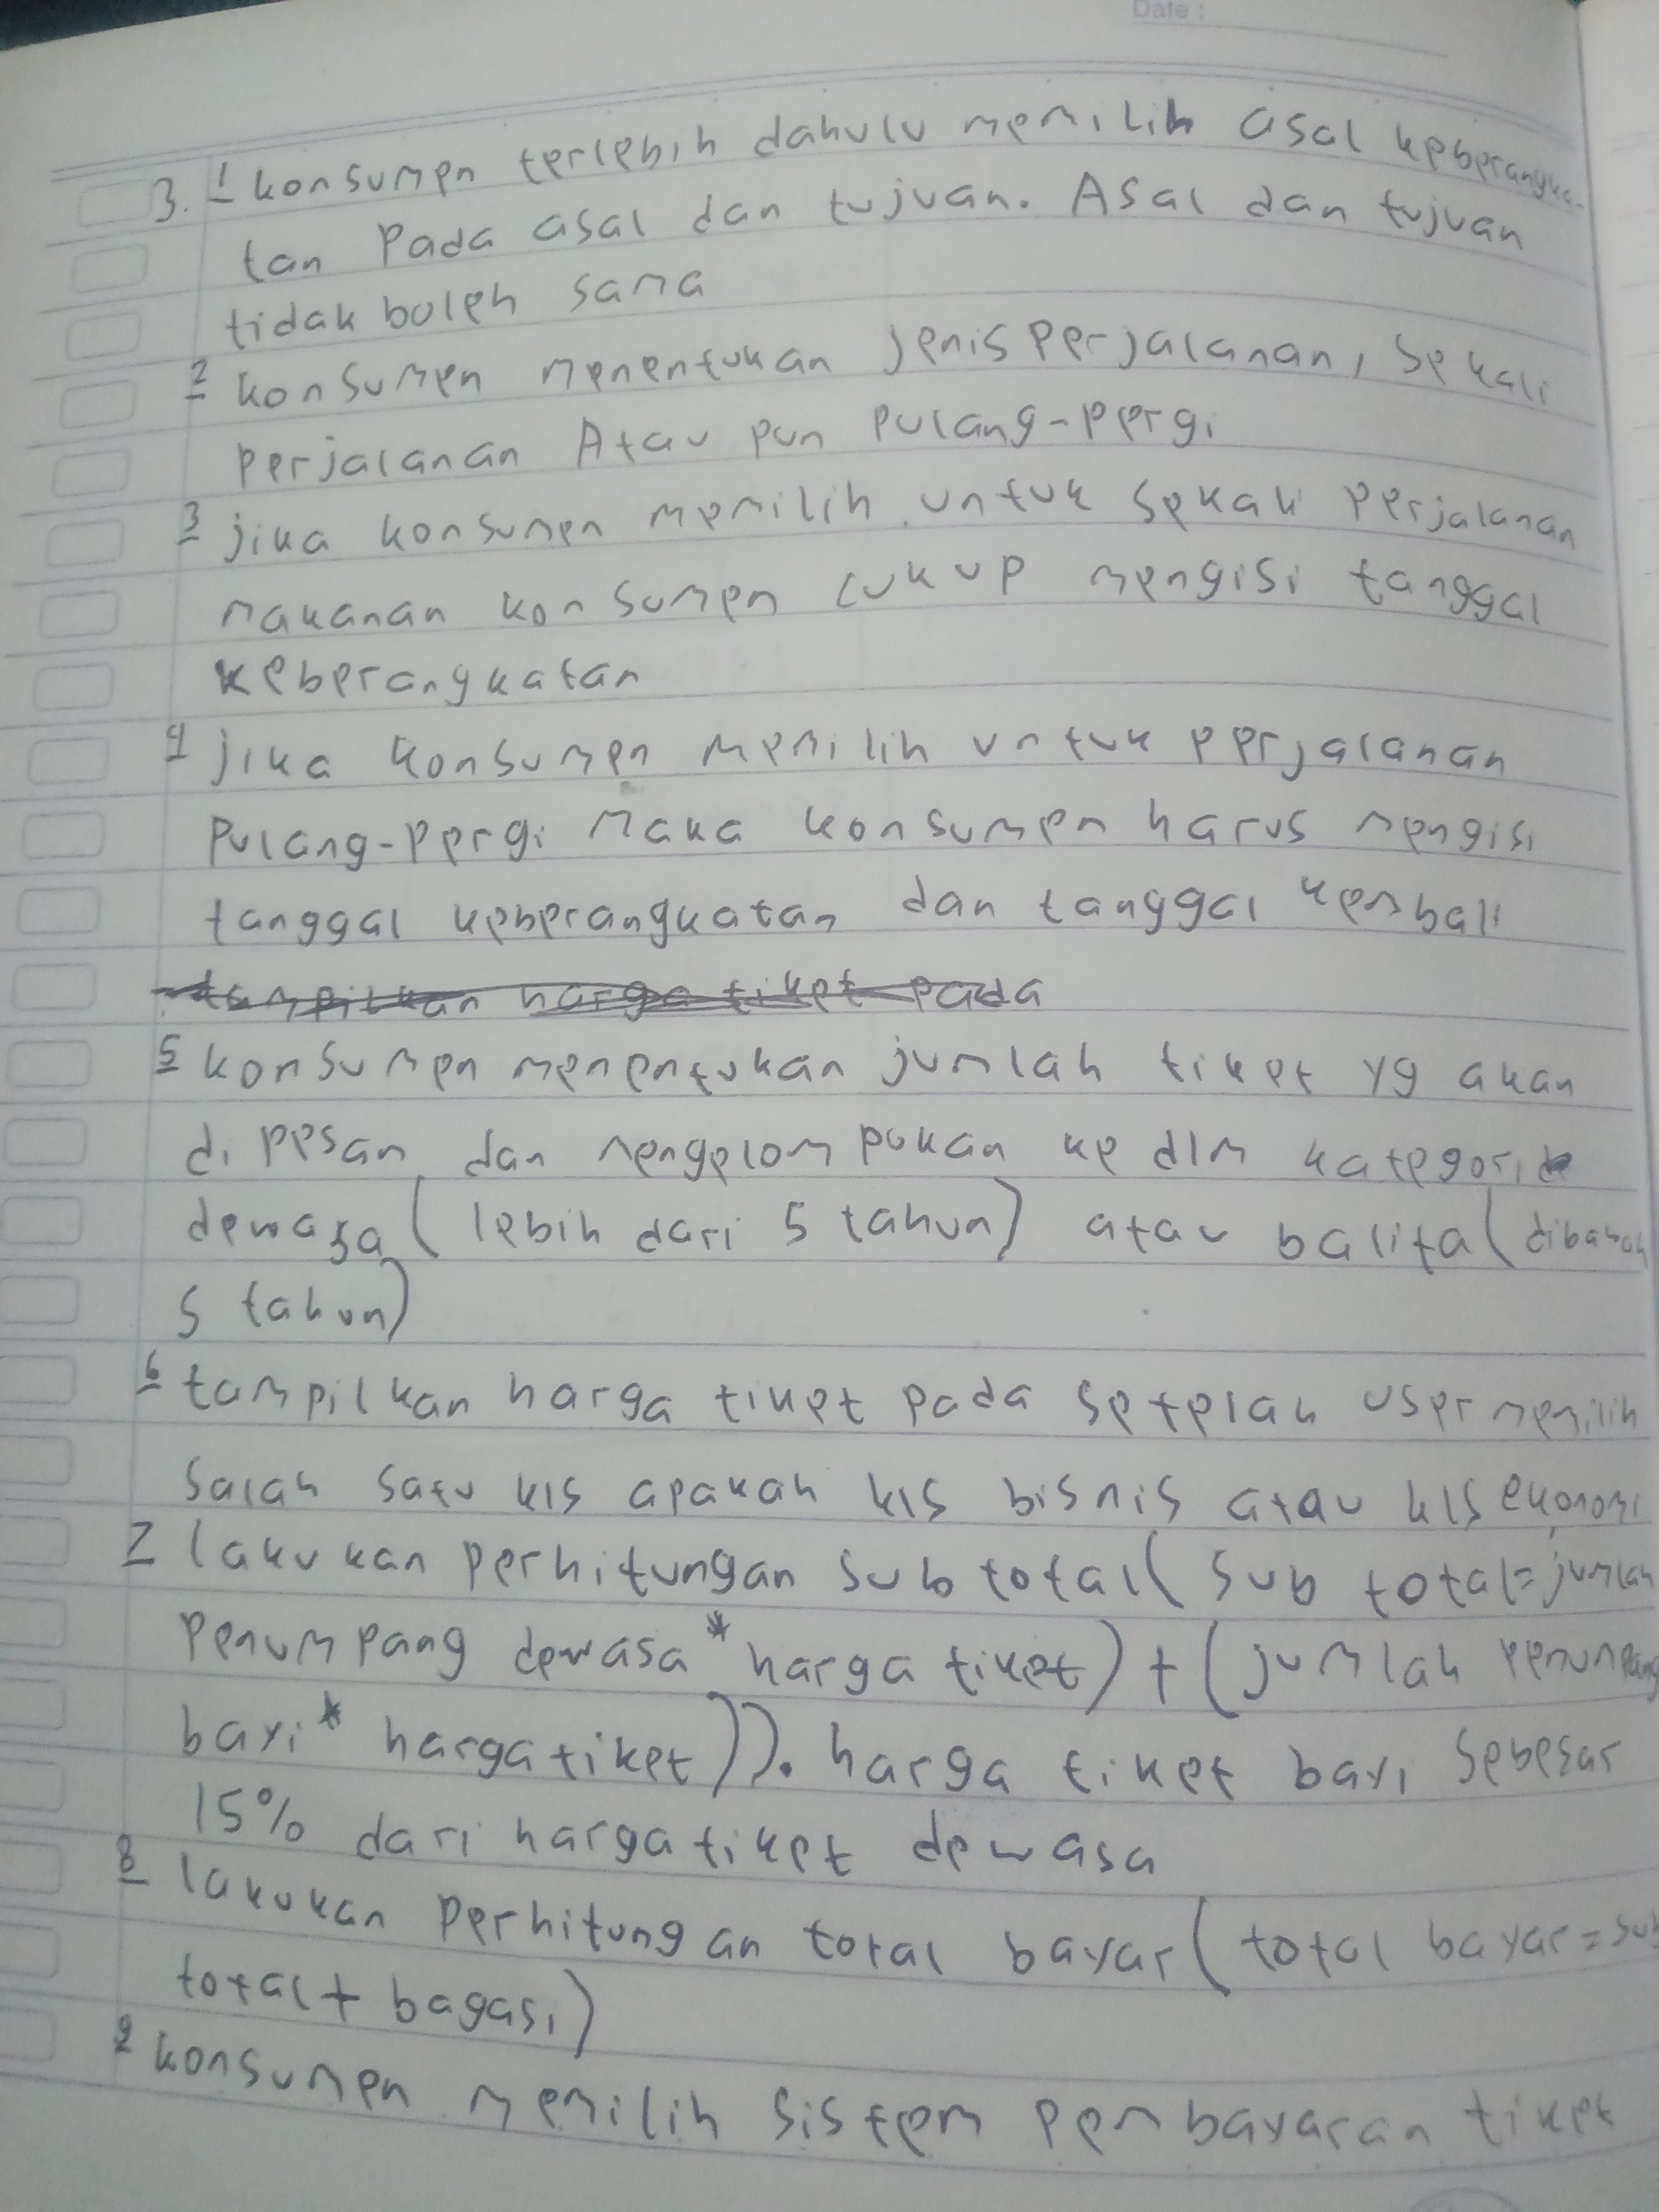 Date :
3. 1 konsumen terlebih dahulu memilih asal keberangka-
tan Pada asal dan tujuan. Asal dan tujuan
tidak boleh sama
2 konsumen menentukan jenis perjalanan, sekali
perjalanan Atau pun pulang-pergi
3 jika konsumen memilih untuk sekali perjalanan
makanan konsumen cukup mengisi tanggal
keberangkatan
4 jika konsumen memilih untuk perjalanan
Pulang-pergi maka konsumen harus mengisi
tanggal keberangkatan dan tanggal kembali
tampilkan harga tiket pada
5 konsumen menentukan jumlah tiket yg akan
di pesan dan mengelompokan ke dlm kategori
dewasa (lebih dari 5 tahun) atau balita (dibawah
5 tahun)
6 tampilkan harga tiket pada setelah user memilih
salah satu kls apakah kls bisnis atau kls ekonomi
7 lakukan perhitungan sub total (sub total = jumlah
penumpang dewasa * harga tiket) + (jumlah penumpang
bayi * harga tiket)). harga tiket bayi sebesar
15% dari harga tiket dewasa
8 lakukan perhitungan total bayar (total bayar = sub
total + bagasi)
9 konsumen memilih sistem pembayaran tiket